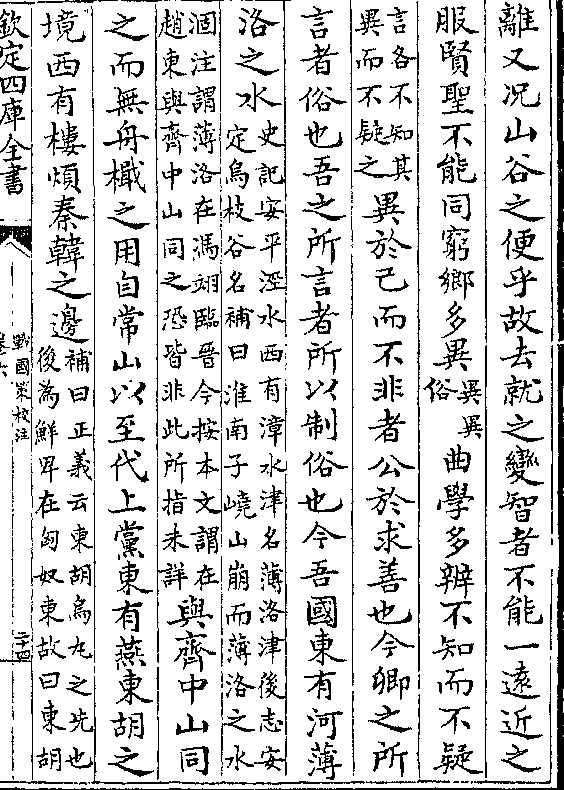 離又況山谷之便乎故去就之變智者不能一遠近之
服賢聖不能同窮鄉多異異異
俗曲學多辨不知而不疑
言各不知其
異而不疑之異於己而不非者公於求善也今卿之所
言者俗也吾之所言者所以制俗也今吾國東有河薄
洛之水史記安平涇水西有漳水津名薄洛津後志安
定烏枝谷名補曰淮南子嶢山崩而薄洛之水
涸注謂薄洛在馮翊臨晉今按本文謂在
趙東與齊中山同之恐皆非此所指未詳與齊中山同
之而無舟檝之用自常山以至代上黨東有燕東胡之
境西有樓煩秦韓之邊補曰正義云東胡烏丸之先也
後為鮮卑在匈奴東故曰東胡
欽定四庫全書
戰國策校注
卷六
二十四